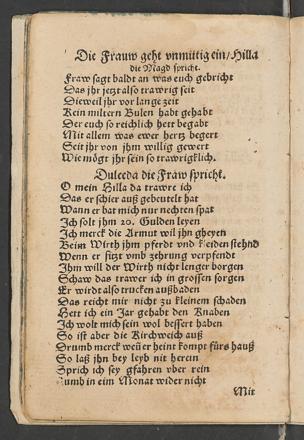 Die Frauw geht vnmuttig ein/ Hilla
die Magd spricht.
Fraw sagt baldt an was euch gebricht
Das jhr jetzt also trawrig seit
Dieweil jhr vor lange zeit
Kein miltern Bulen habt gehabt
Der euch so reichlich hett begabt
Mit allem was ewer hertz begert
Seit jhr von jhm willig gewert
Wie mögt jhr sein so trawrigklich.
Dulceda die Fraw spricht.
O mein Hilla da trawre ich
Das er schier auß gebeutelt hat
Wann er hat mich nur nechten spat
Ich solt jhm 20. Gulden leyen
Ich merck die Armut wil jhn gheyen
Beim Wirth jhm pferdt vnd kleiden stehnd
Wenn er sitzt vmb zehrung verpfendt
Ihm will der Wirth nicht lenger borgen
Schaw das trawer ich in grossen sorgen
Er wirdt also trucken außbaden
Das reicht mir nicht zu kleinem schaden
Hett ich ein Jar gehabt den Knaben
Ich wolt mich sein wol bessert haben
So ist aber die Kirchweich auß
Drumb merck weñ er heint kompt fürs hauß
So laß jhn bey leyb nit herein
Sprich ich sey gfahren vber rein
umb in eim Monat wider nicht
Mit